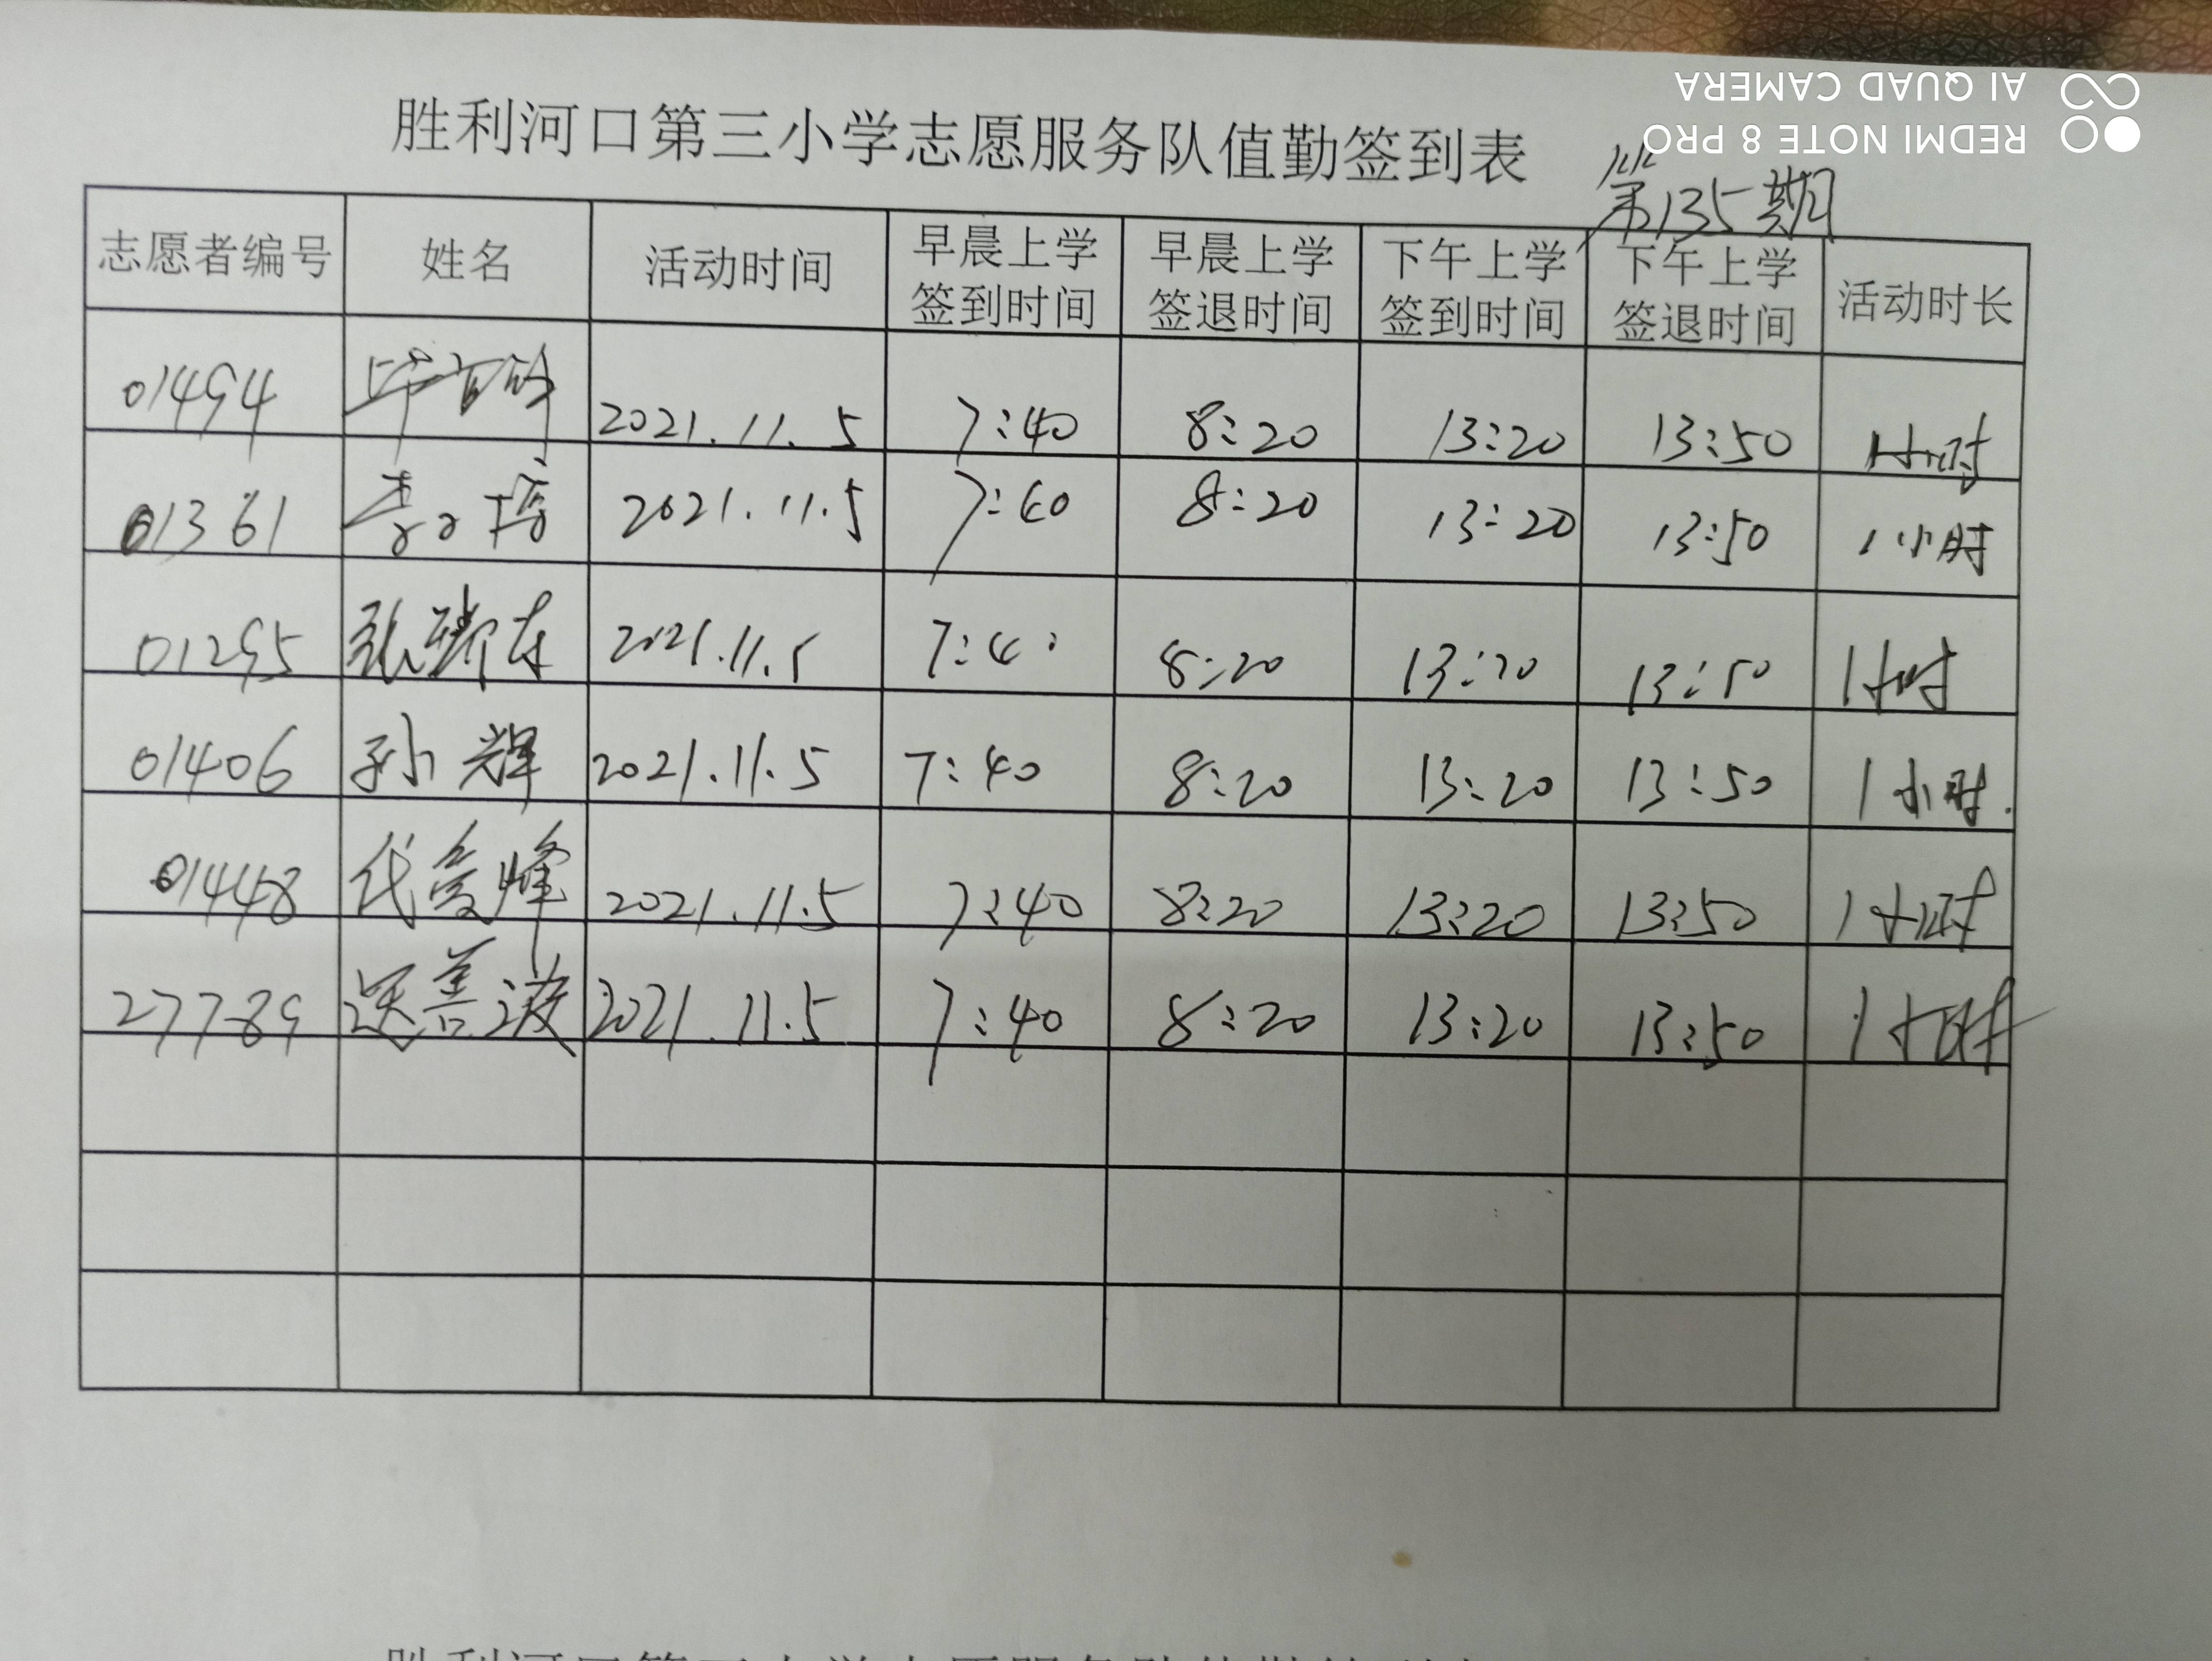 REDMI NOTE 8 PRO
AI QUAD CAMERA
胜利河口第三小学志愿服务队值勤签到表
第135期
志愿者编号 姓名 活动时间 早晨上学签到时间 早晨上学签退时间 下午上学签到时间 下午上学签退时间 活动时长
01494 2021.11.5 7:40 8:20 13:20 13:50 1小时
01361 2021.11.5 7:40 8:20 13:20 13:50 1小时
01295 张瑞东 2021.11.5 7:40 8:20 13:20 13:50 1小时
01406 孙辉 2021.11.5 7:40 8:20 13:20 13:50 1小时.
01448 代爱峰 2021.11.5 7:40 8:20 13:20 13:50 1小时
27789 善波 2021.11.5 7:40 8:20 13:20 13:50 1小时